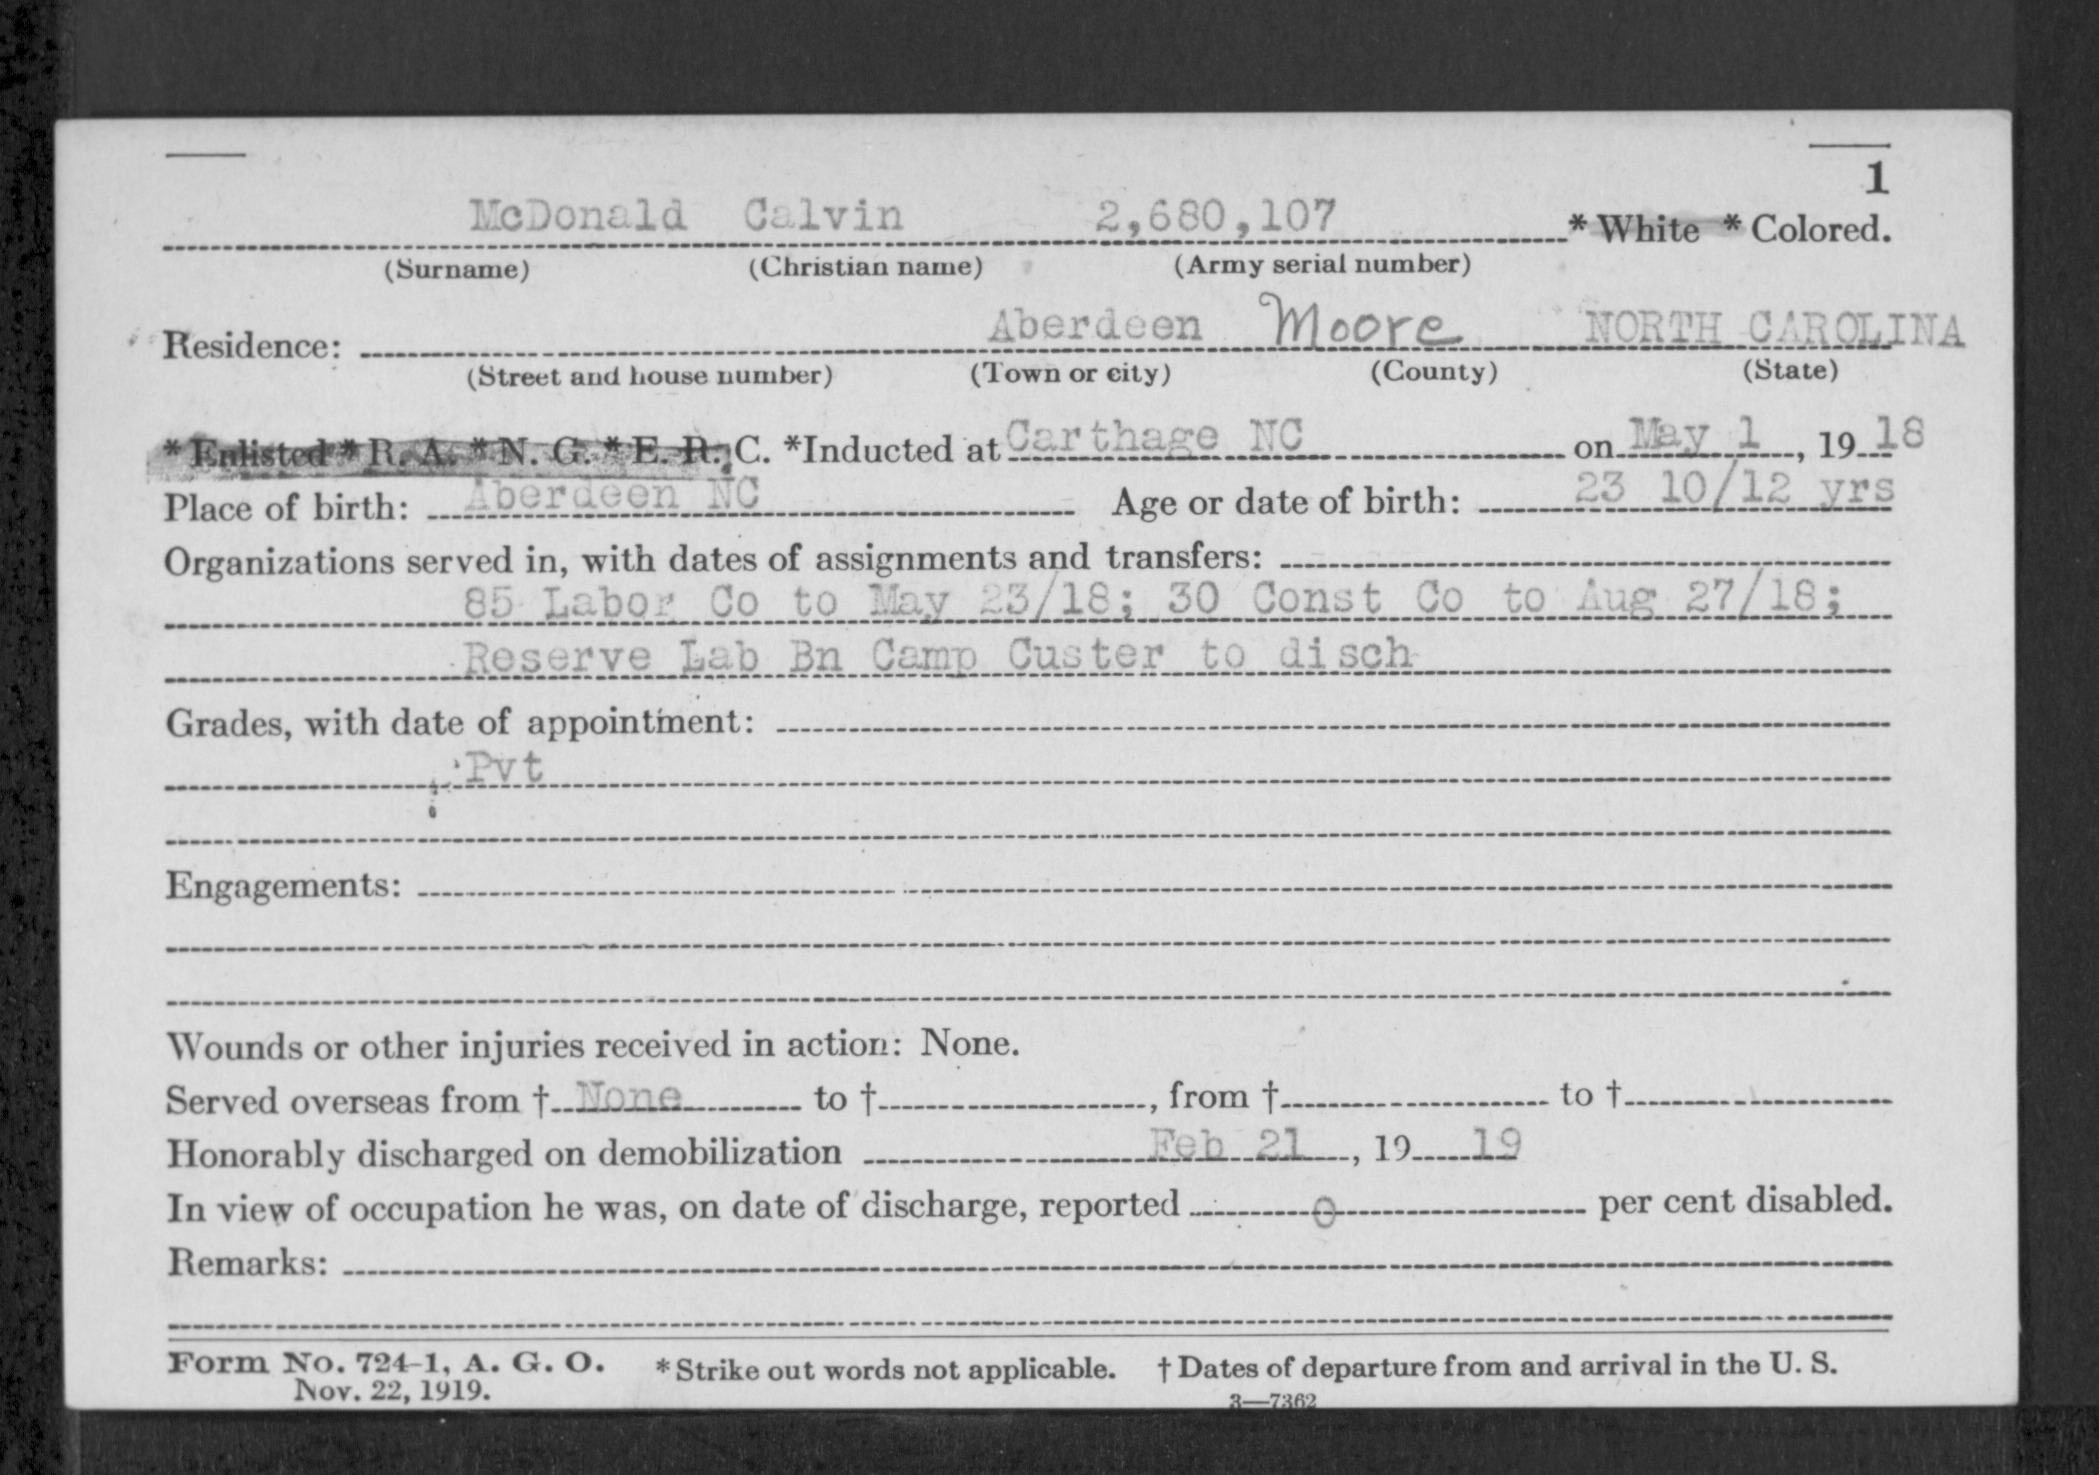 1
McDonald Calvin 2,680,107 * White * Colored.
(Surname) (Christian name) (Army serial number)
Residence: Aberdeen Moore NORTH CAROLINA
(Street and house number) (Town or city) (County) (State)
* Enlisted * R. A. * N. G. * E. R. C. *Inducted at Carthage NC on May 1, 1918
Place of birth: Aberdeen NC Age or date of birth: 23 10/12 yrs
Organizations served in, with dates of assignments and transfers:
85 Labor Co to May 23/18; 30 Const Co to Aug 27/18;
Reserve Lab Bn Camp Custer to disch
Grades, with date of appointment:
Pvt
Engagements:
Wounds or other injuries received in action: None.
Served overseas from † None to †, from † to †
Honorably discharged on demobilization Feb 21, 19 19
In view of occupation he was, on date of discharge, reported 0 per cent disabled.
Remarks:
Form No. 724-1, A. G. O. * Strike out words not applicable. † Dates of departure from and arrival in the U. S.
Nov. 22, 1919. 3—7362